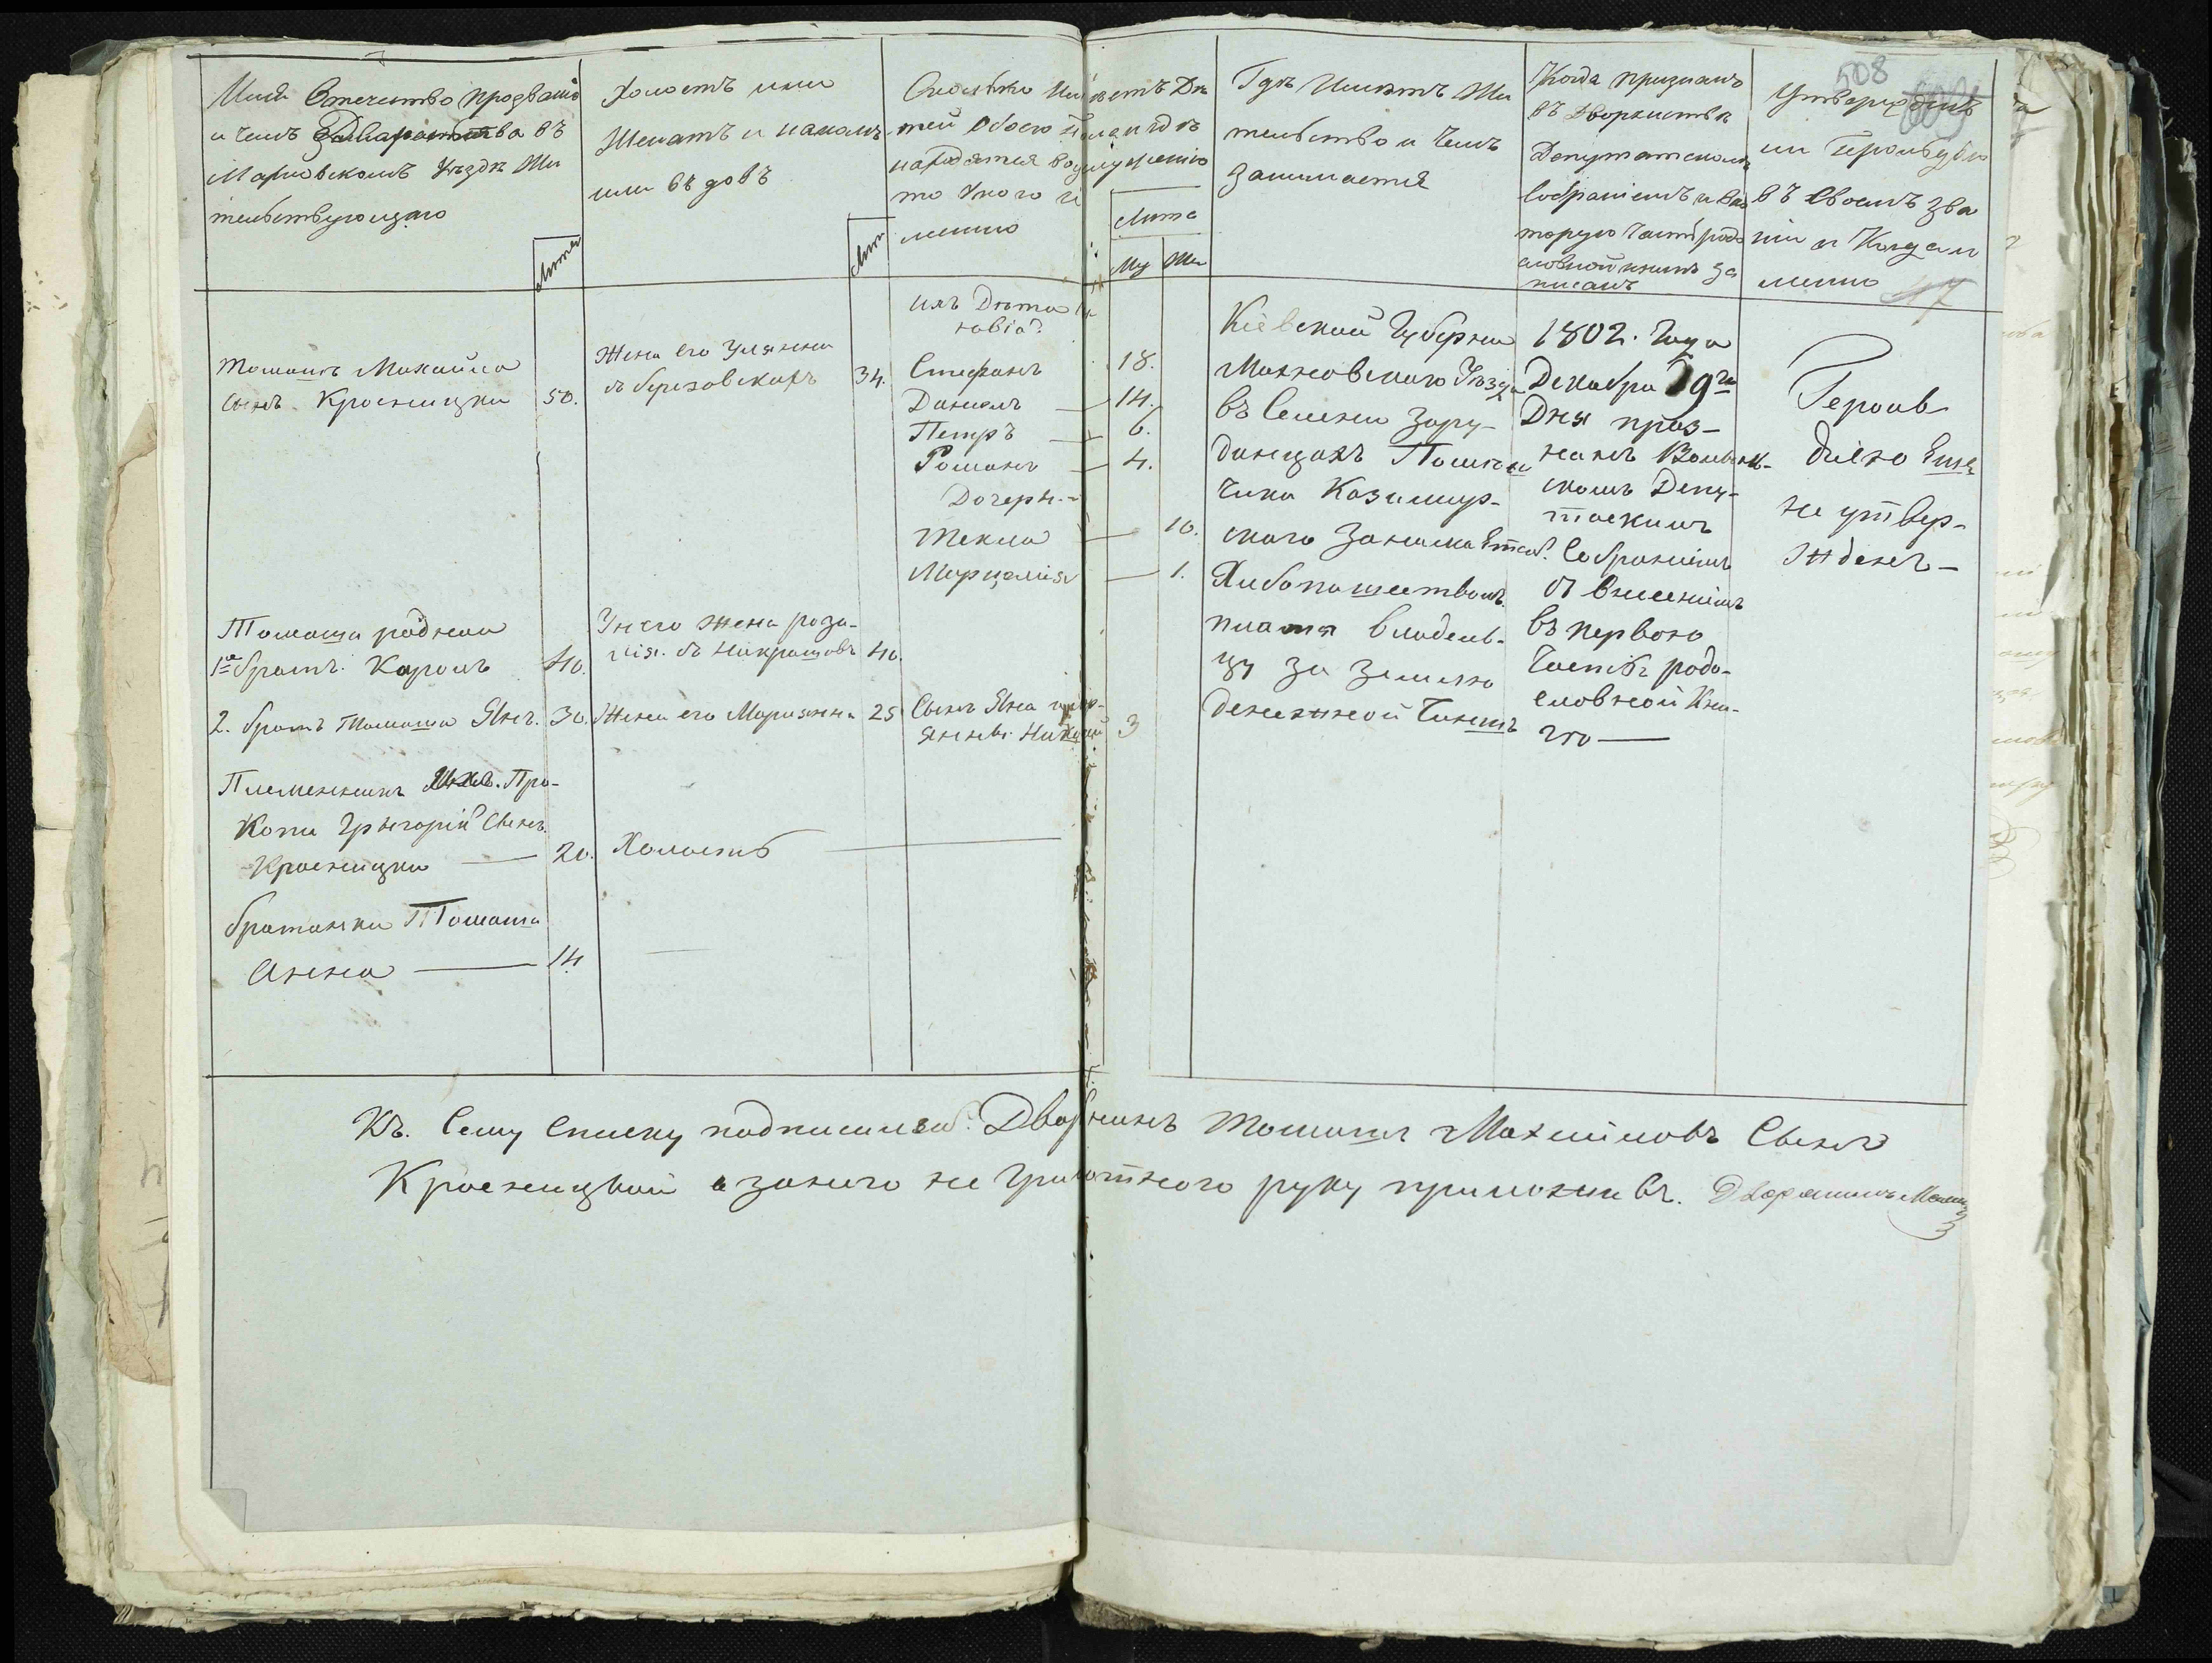 508
Имя Отечество прозвание
и чемъ въ
Махновскомъ уѣздѣ Жи
тельствующаго
Лета
Холостъ или
Женатъ и накомъ
или вдовъ
Лета
Сколько имѣетъ Дѣ
тей обоего пола и гдѣ
находятся
то укого и
менно
Лета
Му Же
Гдѣ Имѣетъ Жи
тельство и Чемъ
Занимается
Когда признанъ
въ Дворянствѣ
Депутатскимъ
собраніемъ и вко
торую Часть родо
словной книги за
писанъ
Утвержденъ
ли Герольдіею
въ своемъ зва
ніи и Когда и
менно
47
Томашъ Михайла
сынъ Красницки 50.
Жена его Улянна
зъ березовскихъ 34.
ихъ Дѣти
Стефанъ 18.
Данилъ — 14.
Петръ — 6.
Романъ — 4.
Дочери. —
Текла — 10.
Марцелія — 1.
Кіевской Губерни
Махновского Уѣзда
въ Селени Зару-
динцахъ Помѣщи
чика Казимир-
ского Занимается
Хлебопашествомъ
платя владель-
цу за землю
денежной Чиншъ
1802. Года
Декабря 9го
Дня приз-
нанъ Волынь-
скимъ Депу-
таскимъ
Собраніемъ
съ внесеніемъ
въ первою
Часть родо-
словной Кни-
гю —
Герол
дією Еще
не утвер-
жденъ —
Томаша родной
1й братъ. Кароль 40.
У него жена роза-
лія. съ 40.
2. братъ Томаша Янъ. 30.
Жена его Марианна 25
Сынъ Яна
3
Племенникъ Ихъ. Про-
копи Григорій Сынъ.
Красницки — 20.
Холостъ —
братанка Томаша
Анна — 14
Къ. Сему Списку подписался. Дворянинъ Томашъ Михайловъ Сынъ
Красницкой а занего не Грамотного руку приложивъ. Дворянинъ